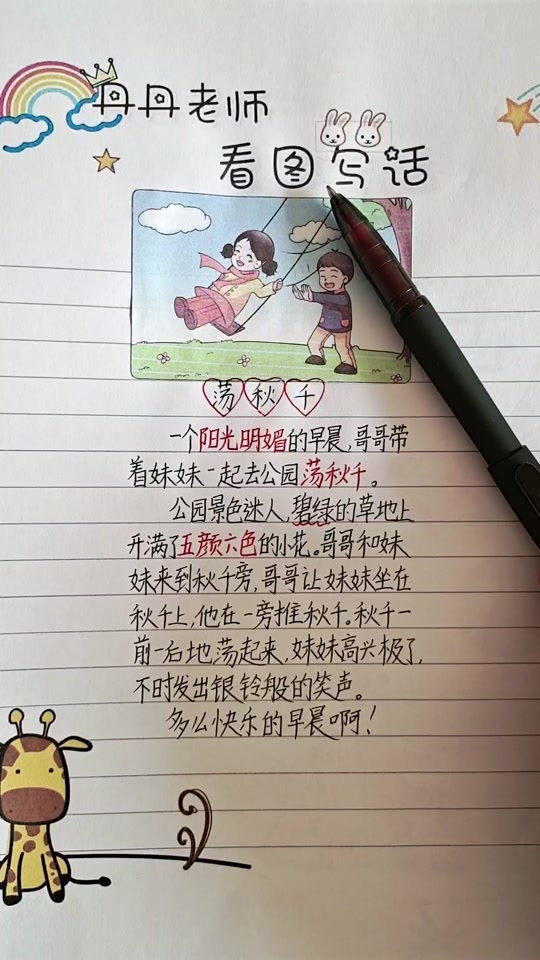 丹丹老师
看图写话
荡秋千
一个阳光明媚的早晨,哥哥带
着妹妹一起去公园荡秋千。
公园景色迷人,碧绿的草地上
开满了五颜六色的小花。哥哥和妹
妹来到秋千旁,哥哥让妹妹坐在
秋千上,他在一旁推秋千。秋千一
前一后地荡起来,妹妹高兴极了,
不时发出银铃般的笑声。
多么快乐的早晨啊!